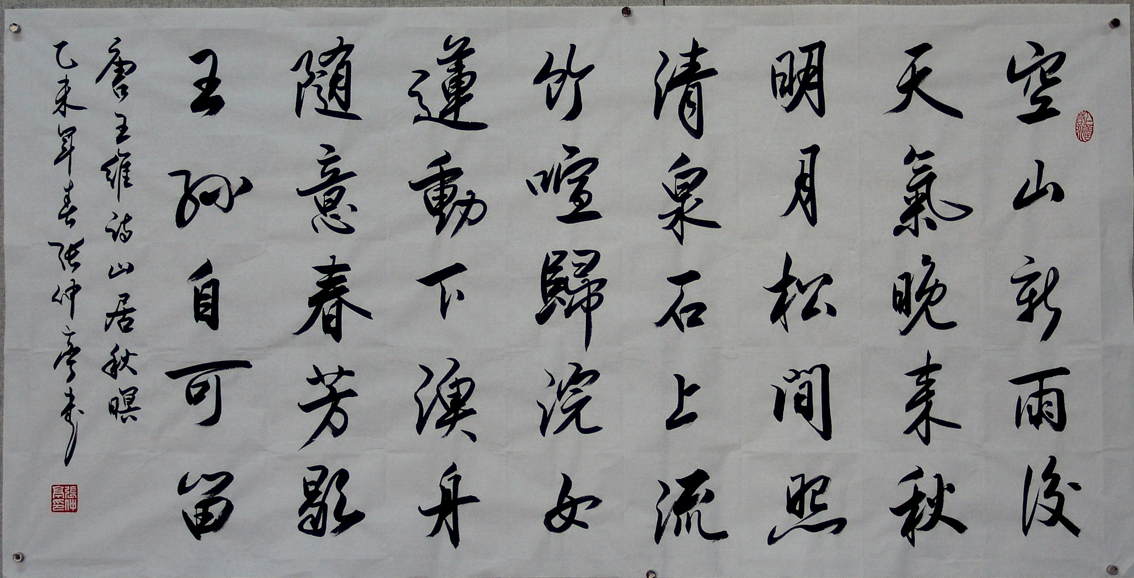 空山新雨後
天氣晚来秋
明月松間照
清泉石上流
竹喧歸浣女
蓮動下漁舟
隨意春芳歇
王孫自可留
唐王維詩山居秋暝
乙未年春張仲亭书
張仲亭印